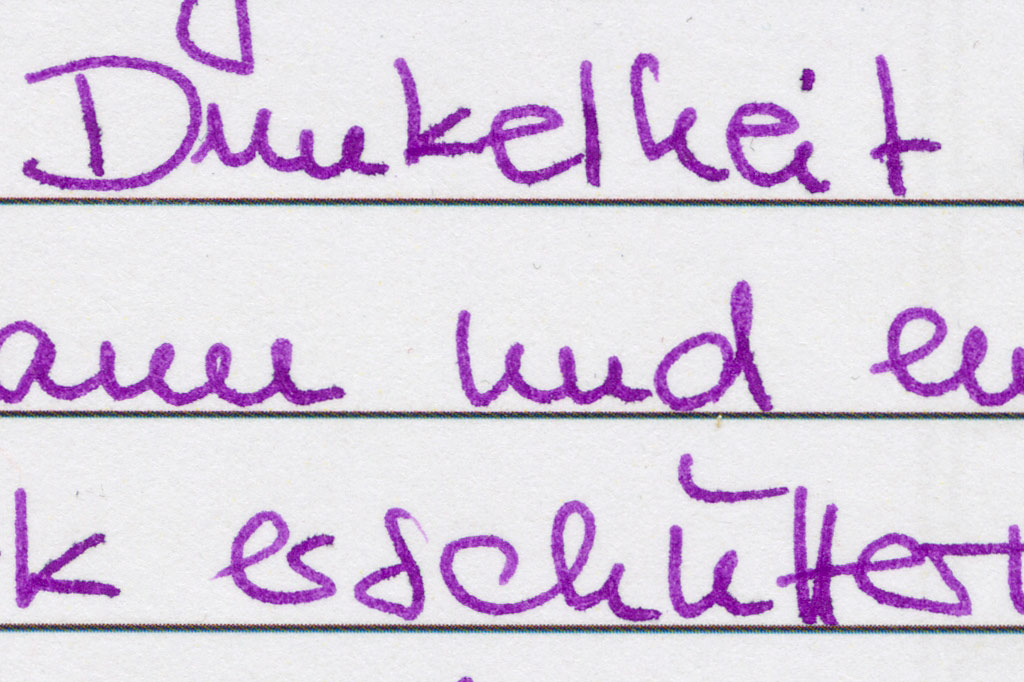 Dunkelheit
ann und en
k erschüttert